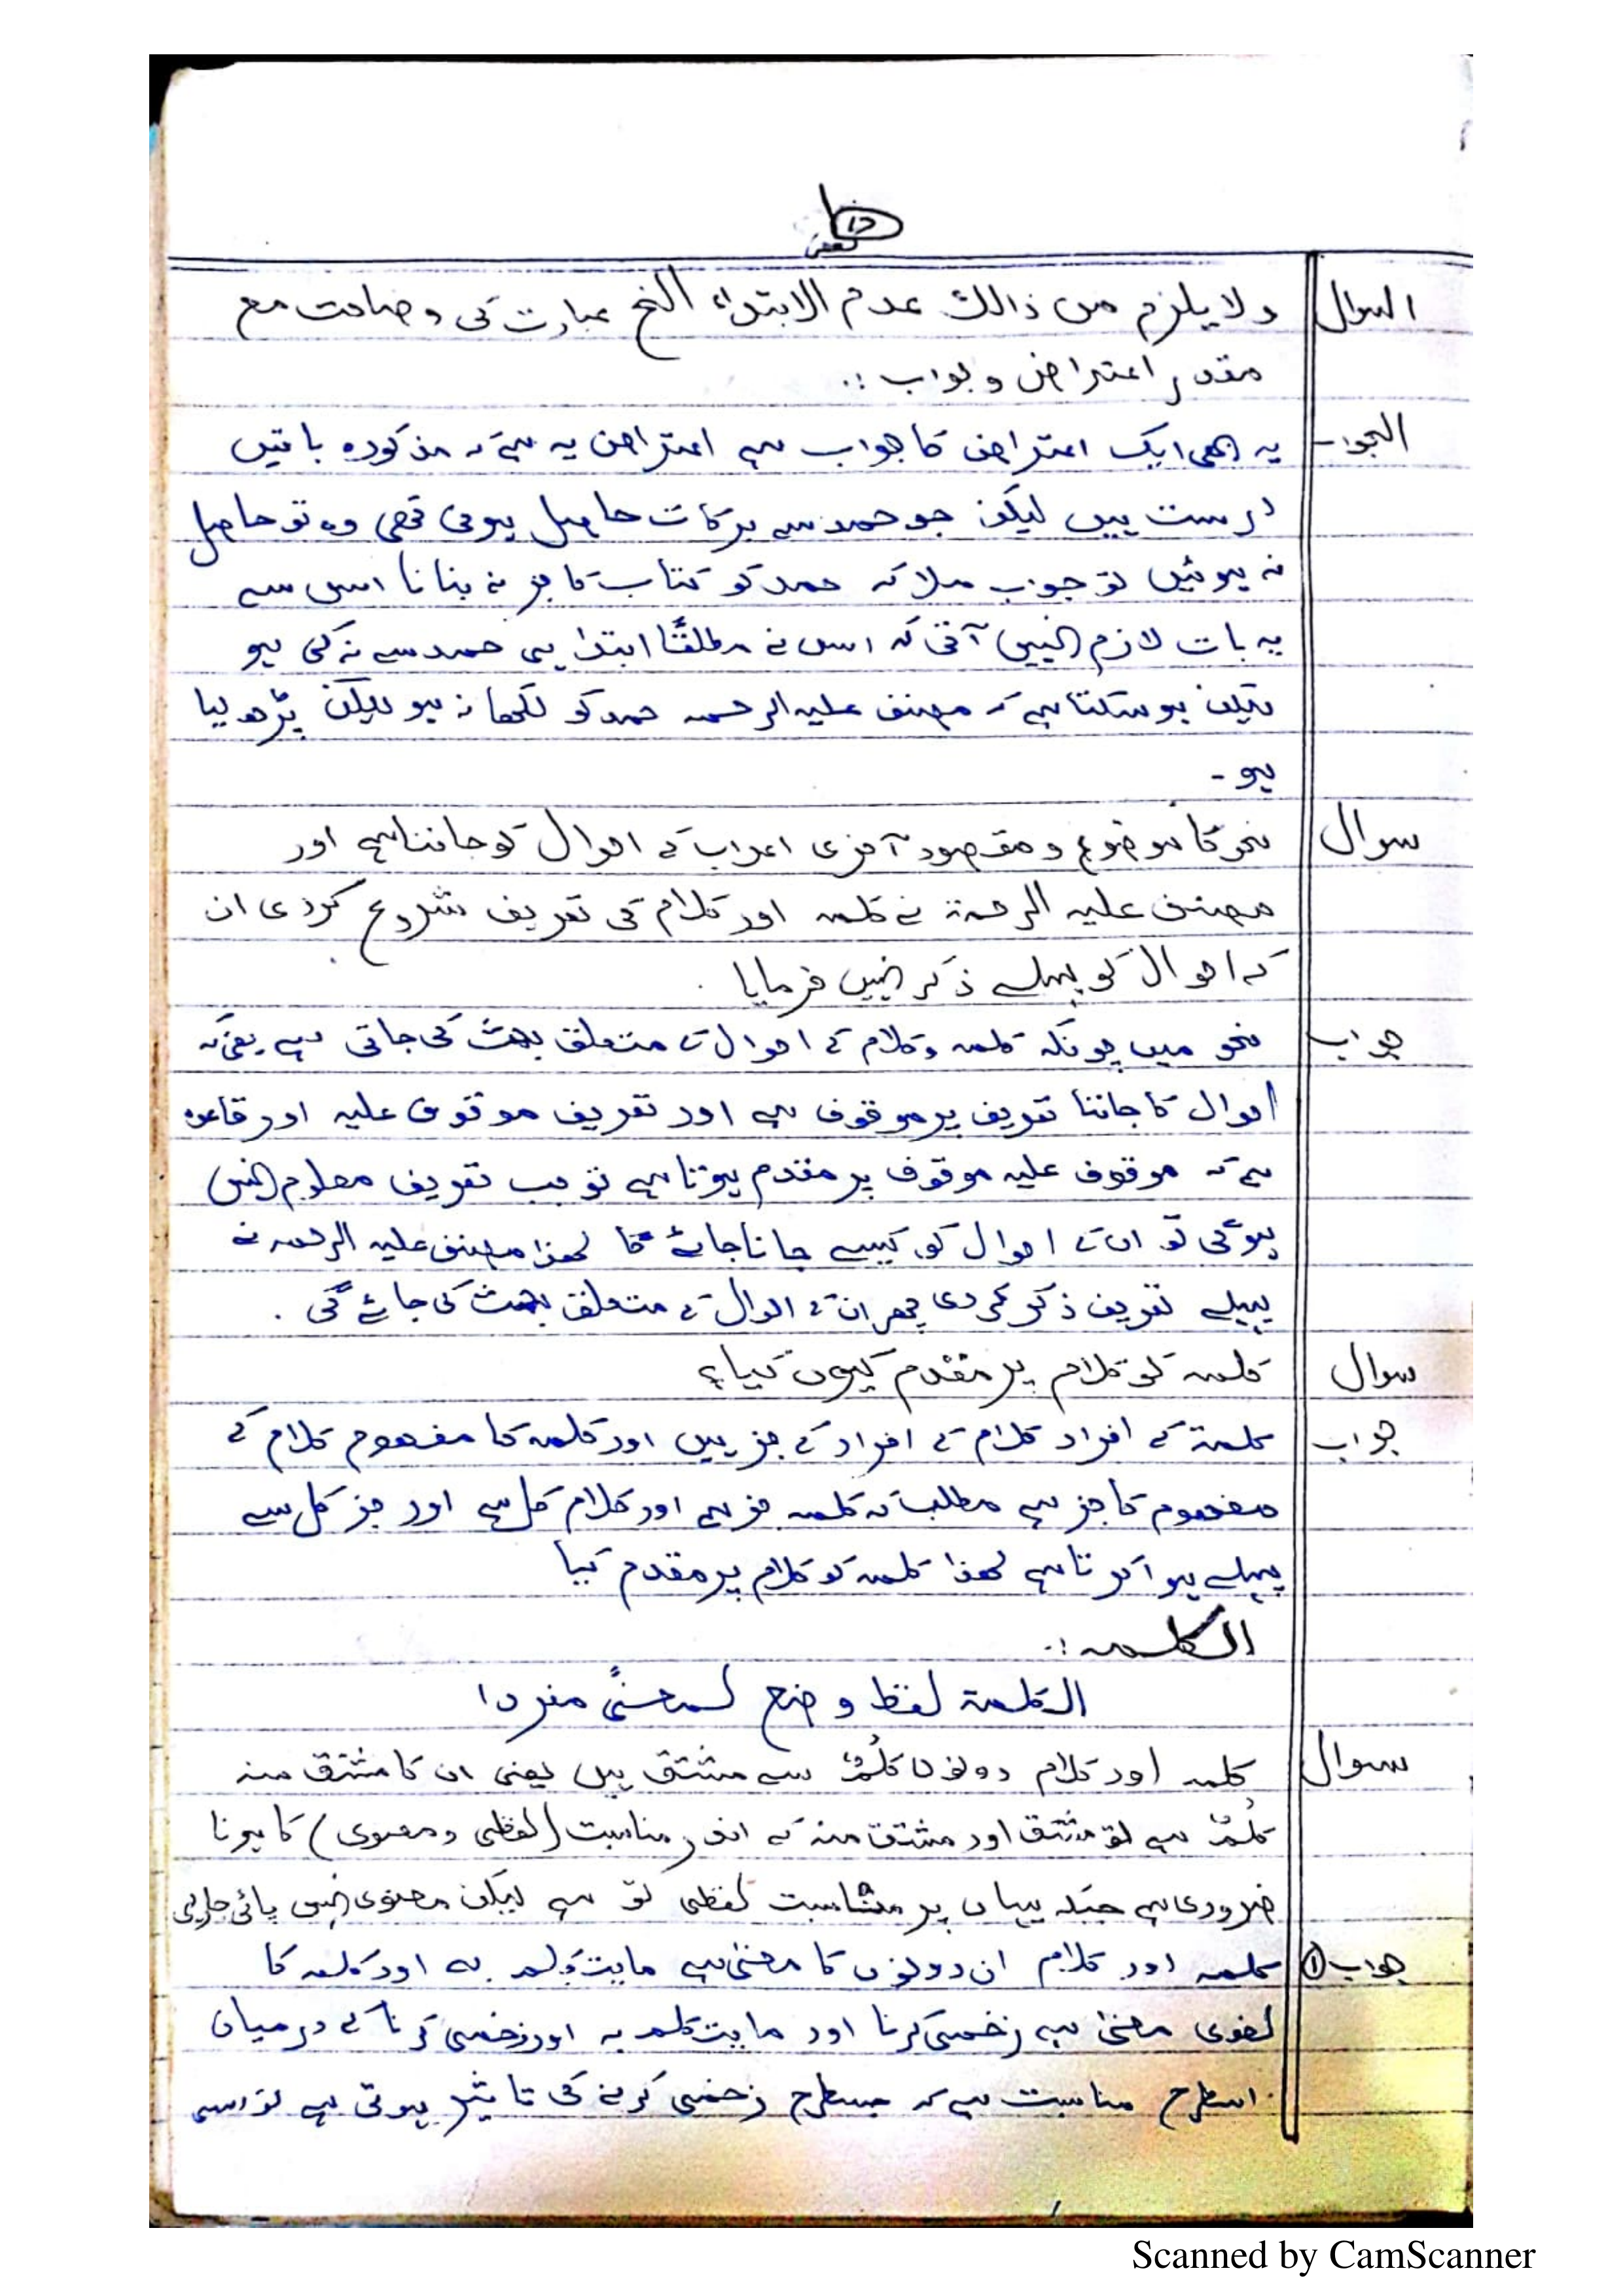 السوال ولا یلزم من ذالک عدم الابتداء الخ عبارت کی وضاحت مع
مقدر اعتراض و جواب :.
الجواب یہ بھی ایک اعتراض کا جواب ہے اعتراض یہ ہے کہ مذکورہ باتیں
درست ہیں لیکن جو حمد سے برکات حاصل ہونی تھی وہ تو حاصل
نہ ہوئیں تو جواب ملا کہ حمد کو کتاب کا جز نہ بنانا اس سے
یہ بات لازم نہیں آتی کہ اس نے مطلقًا ابتدا ہی حمد سے نہ کی ہو
لیکن ہو سکتا ہے کہ مصنف علیہ الرحمہ حمد کو لکھا نہ ہو لیکن پڑھ لیا
ہو -
سوال نحو کا موضوع و مقصود آخری اعراب کے احوال کو جاننا ہے اور
مصنف علیہ الرحمۃ نے کلمہ اور کلام کی تعریف شروع کردی ان
کے احوال کو پہلے ذکر نہیں فرمایا .
جواب نحو میں چونکہ کلمہ وکلام کے احوال کے متعلق بحث کی جاتی ہے یعنی کہ
احوال کا جاننا تعریف پر موقوف ہے اور تعریف موقوف علیہ اور قاعدہ
ہے کہ موقوف علیہ موقوف پر مقدم ہوتا ہے تو جب تعریف معلوم نہیں
ہوگی تو ان کے احوال کو کیسے جانا جائے گا لھذا مصنف علیہ الرحمہ نے
پہلے تعریف ذکر کر دی پھر ان کے احوال کے متعلق بحث کی جائے گی .
سوال کلمہ کو کلام پر مقدم کیوں کیا؟
جواب کلمۃ کے افراد کلام کے افراد کے جز ہیں اور کلمہ کا مفھوم کلام کے
مفھوم کا جز ہے مطلب کہ کلمہ جز ہے اور کلام کل ہے اور جز کل سے
پہلے ہوا کرتا ہے لھذا کلمہ کو کلام پر مقدم کیا
الکلمہ :.
الکلمۃ لفظ وضع لمعنًی مفردا
سوال کلمہ اور کلام دونوں کَلْمٌ سے مشتق ہیں یعنی ان کا مشتق منہ
کَلْمٌ ہے تو مشتق اور مشتق منہ کے اندر مناسبت (لفظی و معنوی) کا ہونا
ضروری ہے جبکہ یہاں پر مناسبت لفظی تو ہے لیکن معنوی نہیں پائی جا رہی
جواب ① کلمہ اور کلام ان دونوں کا معنیٰ ہے مایتکلم بہ اور کلمہ کا
لغوی معنیٰ ہے زخمی کرنا اور مایتکلم بہ اور زخمی کرنا کے درمیان
اسطرح مناسبت ہے کہ جسطرح زخمی کرنے کی تاثیر ہوتی ہے تو اسی
Scanned by CamScanner